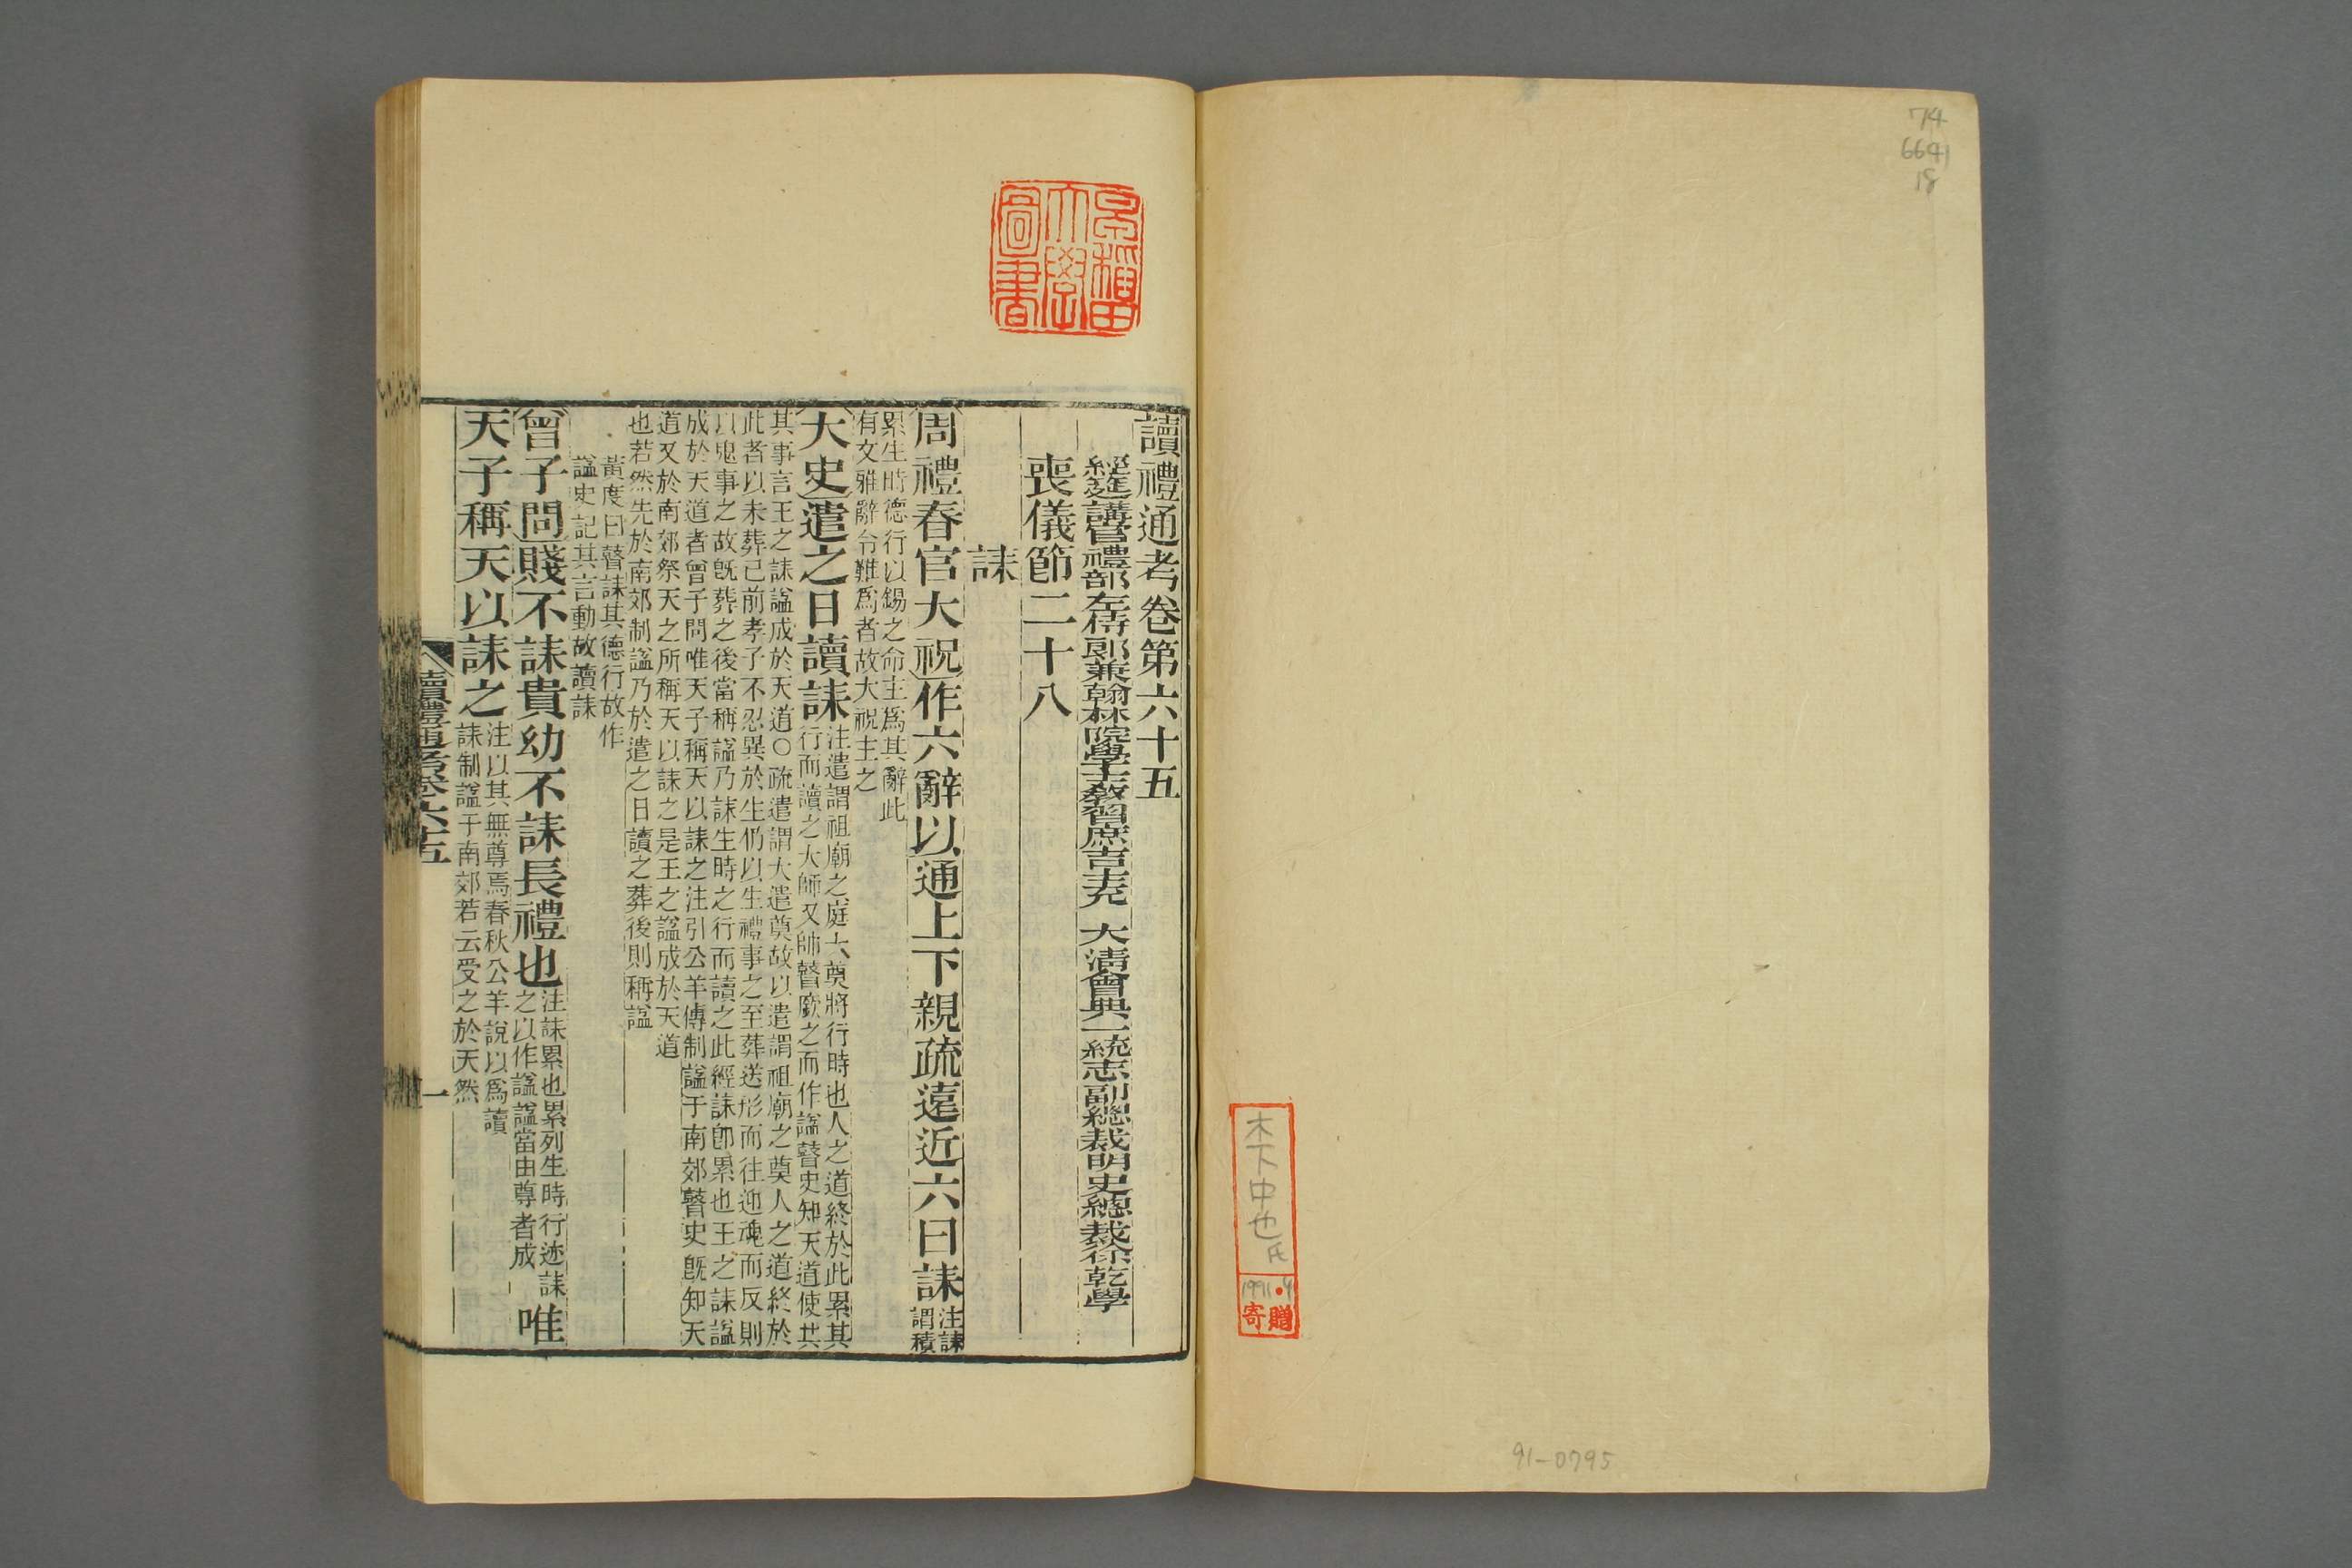 74
6641
18
木下中也氏
1991.4
寄贈
91-0795
早稲田大學圖書
讀禮通考卷第六十五
經筵講官禮部左侍郎兼翰林院學士教習庶吉士充 大清會典一統志副總裁明史總裁徐乾學
喪儀節二十八
誄
周禮春官大祝作六辭以通上下親疏遠近六曰誄
注誄
謂積
累生時德行以錫之命主爲其辭此
有文雅辭令難爲者故大祝主之
大史遣之日讀誄
注遣謂祖廟之庭大奠將行時也人之道終於此累其
行而讀之大師又帥瞽廞之而作謚瞽史知天道使共
其事言王之誄謚成於天道○疏遣謂大遣奠故以遣謂祖廟之奠人之道終於
此者以未葬已前孝子不忍異於生仍以生禮事之至葬送形而往迎魂而反則
以鬼事之故既葬之後當稱謚乃誄生時之行而讀之此經誄卽累也王之誄謚
成於天道者曾子問唯天子稱天以誄之注引公羊傳制謚于南郊瞽史既知天
道又於南郊祭天之所稱天以誄之是王之謚成於天道
也若然先於南郊制謚乃於遣之日讀之葬後則稱謚
黃度曰瞽誄其德行故作
謚史記其言動故讀誄
曾子問賤不誄貴幼不誄長禮也
注誄累也累列生時行迹誄
之以作謚謚當由尊者成
唯
天子稱天以誄之
注以其無尊焉春秋公羊說以爲讀
誄制謚于南郊若云受之於天然
讀禮通考卷六十五
一